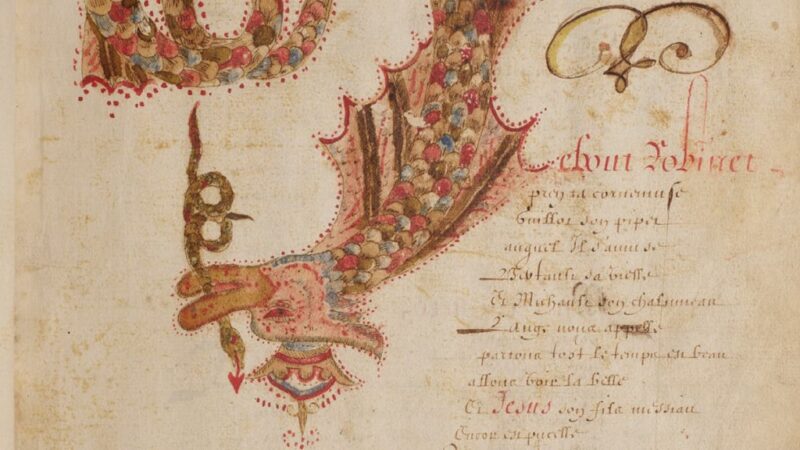 Debout Robinet
pren ta cornemuse
Guillot son pipet
auquel Il samuse
sa vielle
Et Michault son chalumeau
Lange nous appelle
partons tost le temps est beau
allons voir la belle
Et Jesus son filz
Encor est pucelle